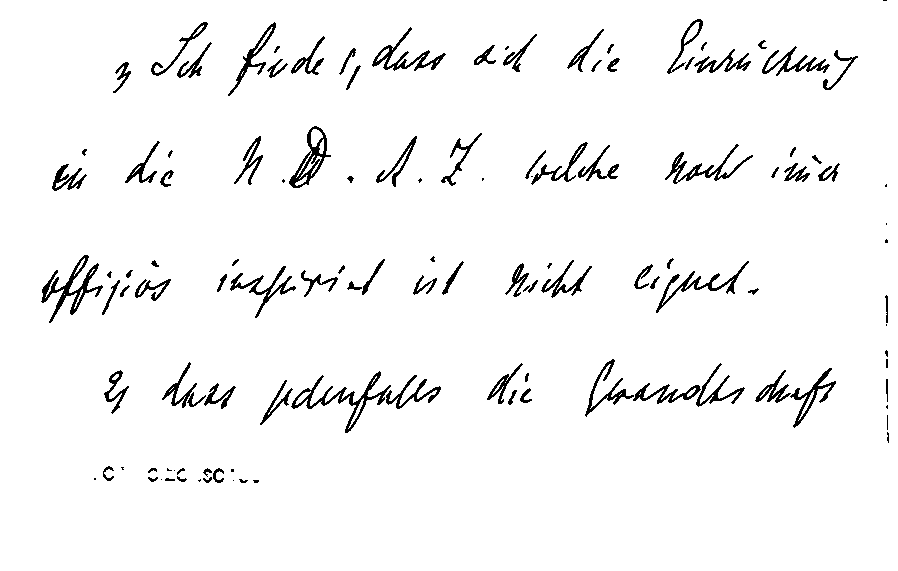 1) Ich finde, dass sich die Einrückung
in die N.D.A.Z. welche noch im̄er
offiziös inspiriert ist nicht eignet.
2) dass jedenfalls die Gesandtschaft